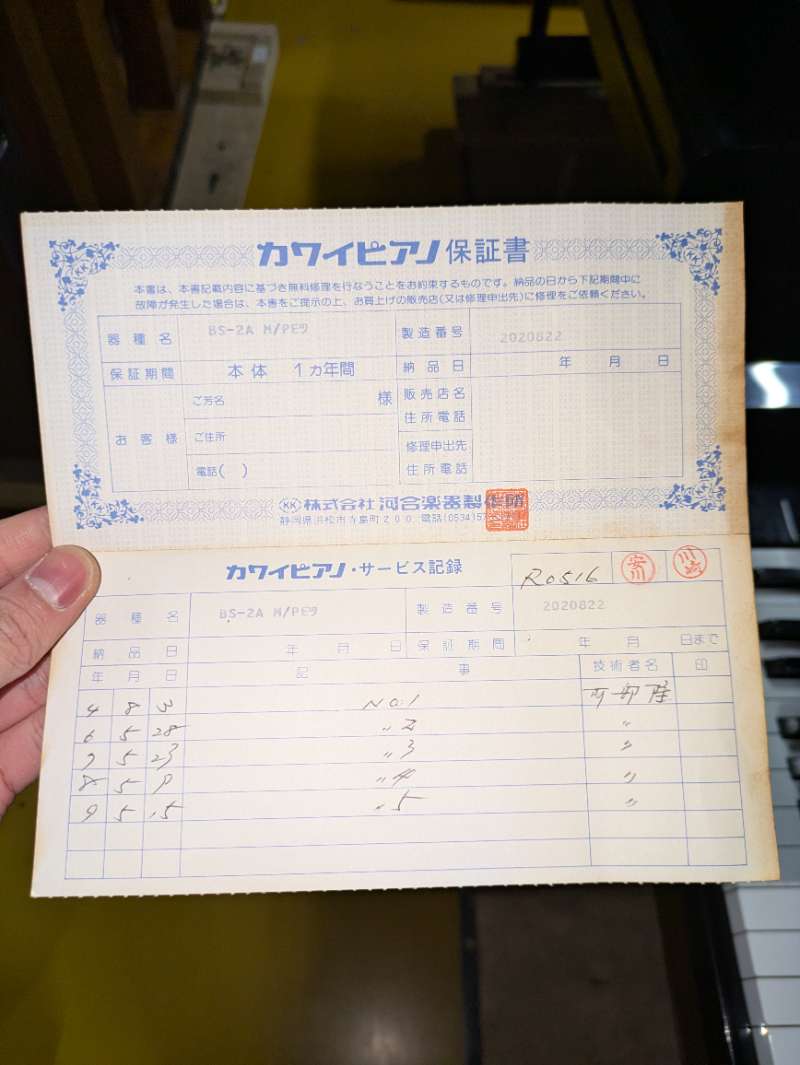 カワイピアノ 保証書
本書は、本書記載内容に基づき無料修理を行なうことをお約束するものです。納品の日から下記期間中に
故障が発生した場合は、本書をご提示の上、お買上げの販売店(又は修理申出先)に修理をご依頼ください。
器種名 BS-2A M/PEﾜ 製造番号 2020822
保証期間 本体 1ヵ年間 納品日 年 月 日
お客様 ご芳名 様 販売店名
住所電話
ご住所
修理申出先
電話( ) 住所電話
KK 株式会社 河合楽器製作所
静岡県浜松市寺島町200 電話(0534)5
カワイピアノ・サービス記録 R0516 安川 川崎
器種名 BS-2A M/PEﾜ 製造番号 2020822
納品日 年 月 日 保証期間 年 月 日まで
年 月 日 記事 技術者名 印
4 8 3 No.1
6 5 28 〃2 〃
7 5 23 〃3 〃
8 5 9 〃4 〃
9 5 15 〃5 〃